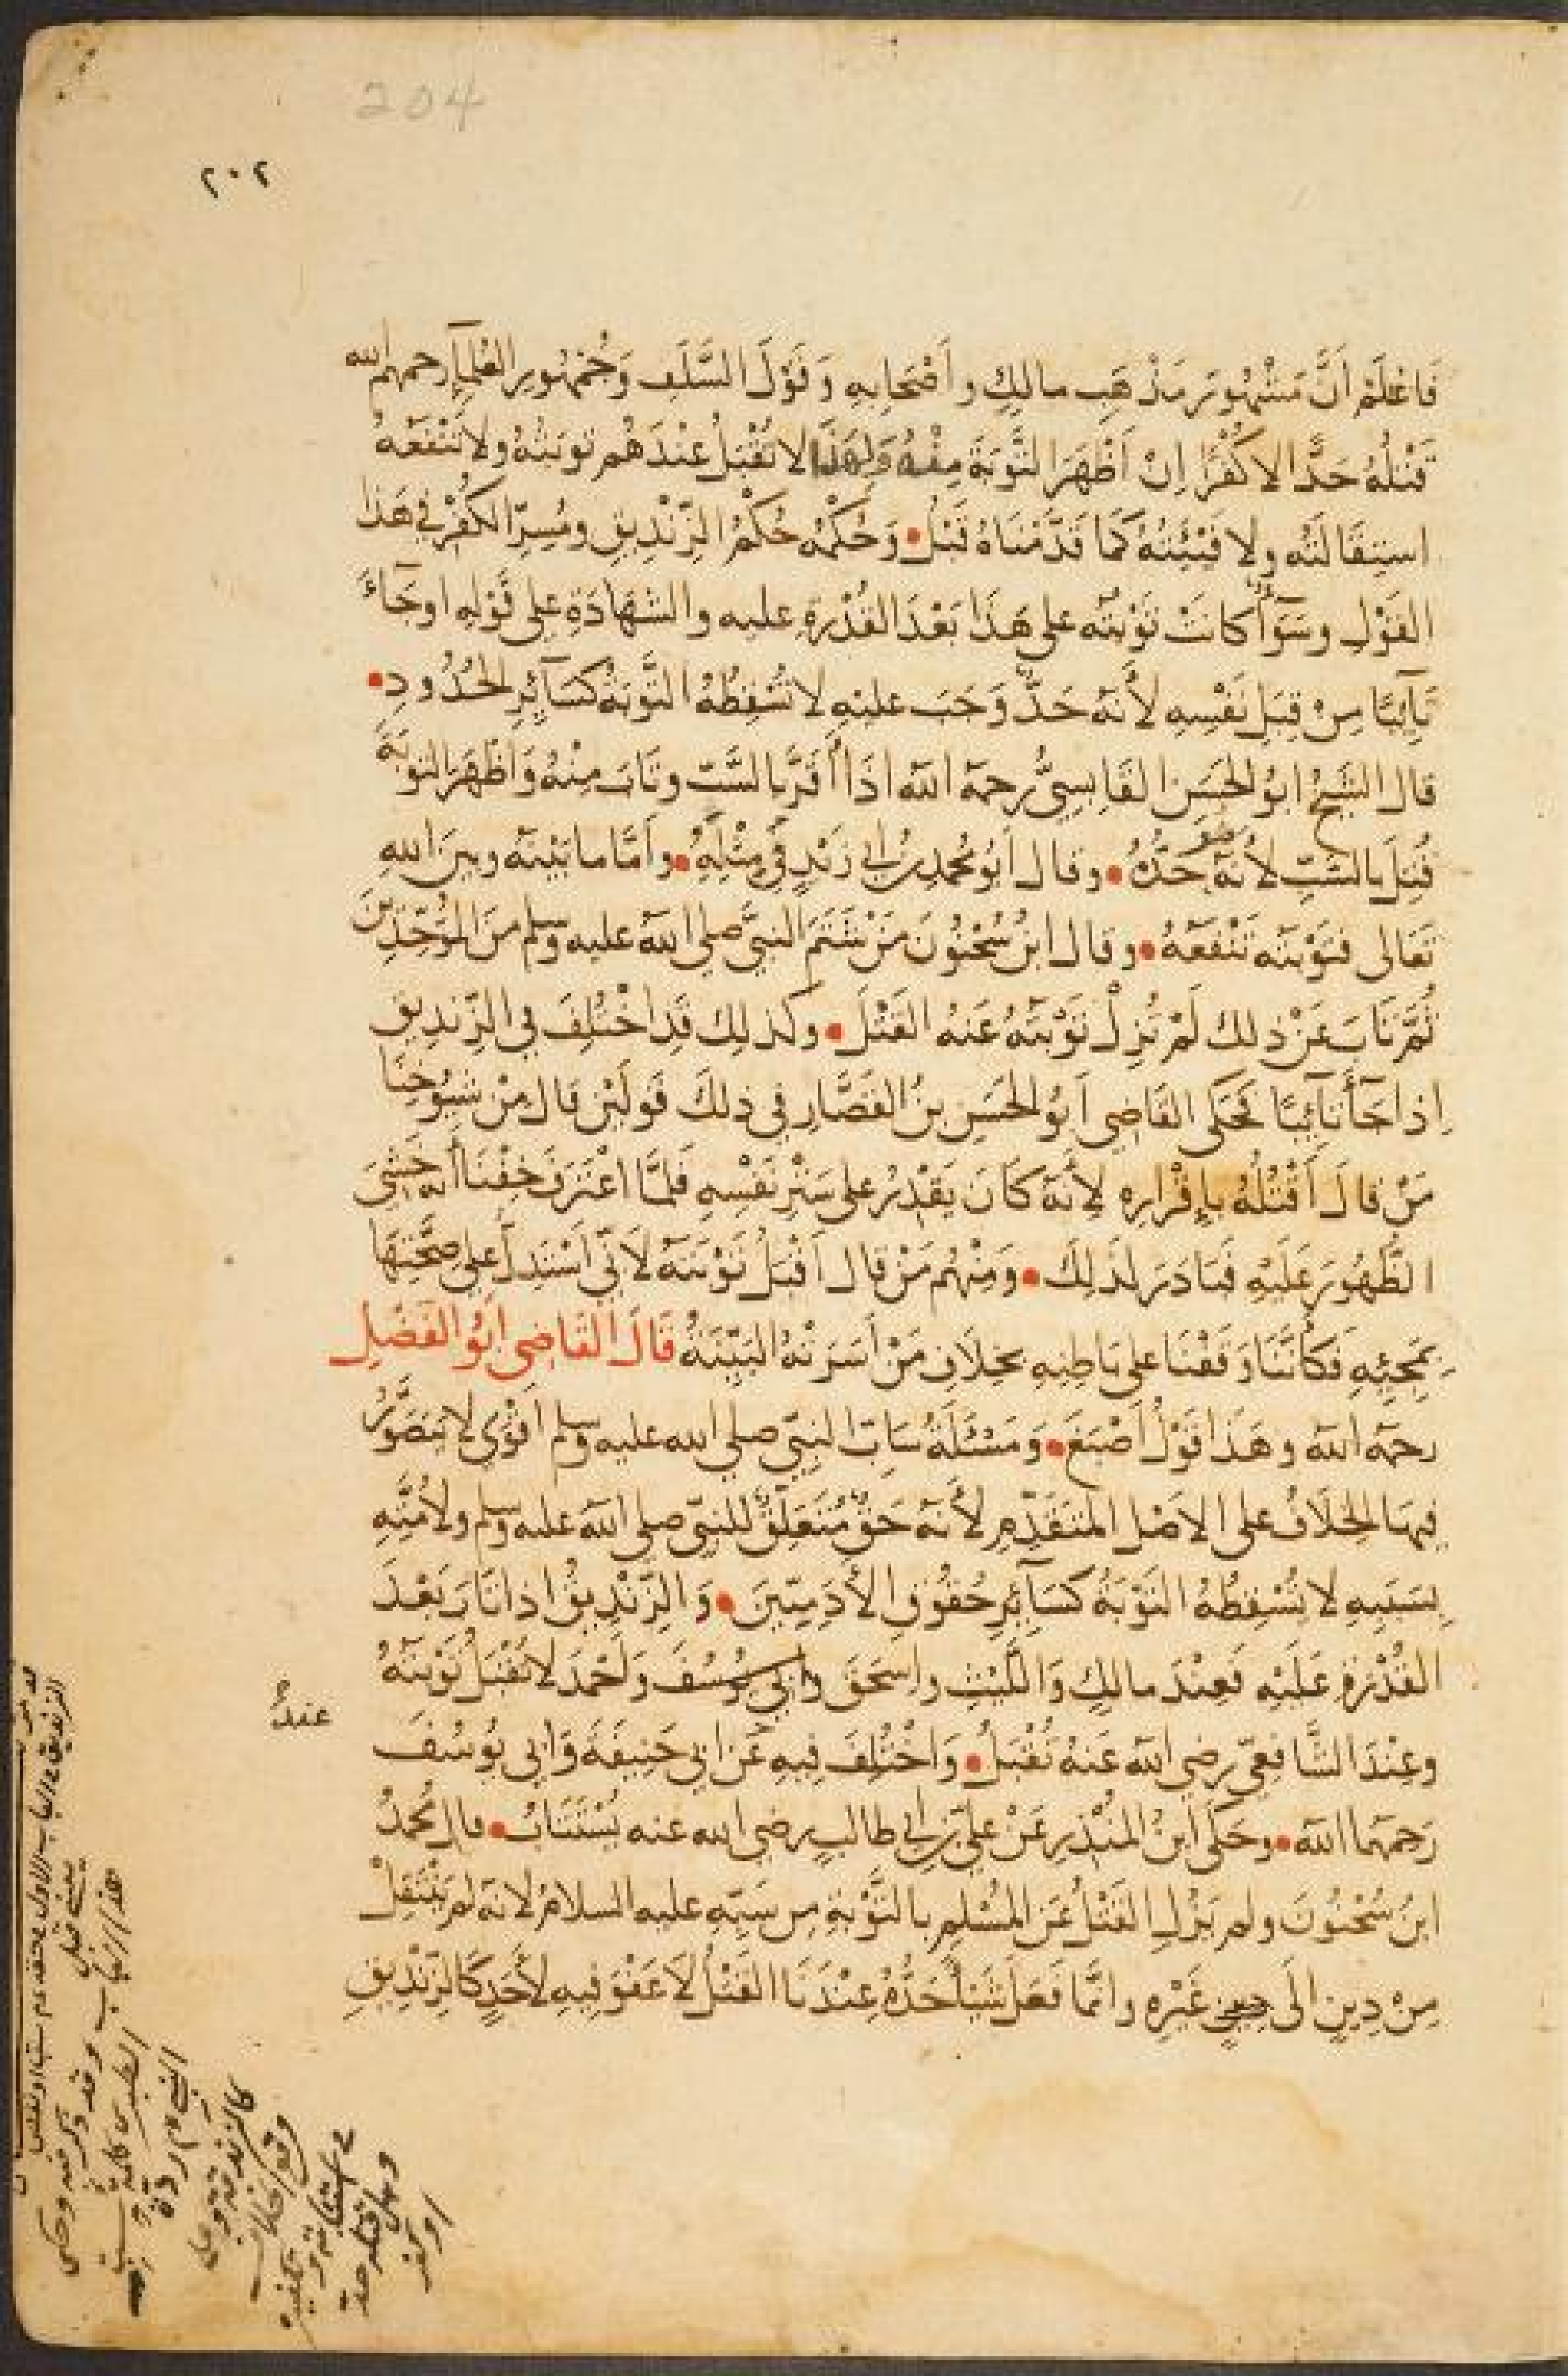 204
٢٠٢
فَاعْلَمْ اَنَّ مَشْهُورَ مَذْهَبِ مالِكٍ واَصْحَابِهِ وَقَوْلَ السَّلَفِ وَجُمْهُورِ العُلَمآءِ رحمهم الله
قَتْلُهُ حَدًّا لاكُفْرًا اِنْ اَظْهَرَ التَّوْبَةَ مِنْهُ وَلِهَذَا لا تُقْبَلُ عِنْدَهُم توبَتُهُ ولا تَنْفَعُهُ
استِقَالَتُه ولا فَيْئَتُهُ كَمَا قَدَّمْنَاهُ قَبْلُ • وَحُكْمُه حُكْمُ الزِّنْدِيقِ ومُسِرِّ الكُفْرِ في هَذا
القَوْلِ وسَوَآءٌ كانَتْ تَوْبَتُه على هَذَا بَعْدَ القُدْرَةِ عليه والشهَادَةِ على قَوْلِهِ اوجَآءَ
تَآئِبًا مِنْ قِبَلِ نَفْسِهِ لأَنَّهُ حَدٌّ وَجَبَ عليْهِ لا تُسْقِطُهُ التَّوْبَةُ كسَآئِرِ الحُدُودِ •
قال الشَيْخُ ابوُ الحَسَنِ القَابِسِيُّ رحمه الله اذَا أَقَرَّ بالسَّبّ وتَابَ مِنْهُ وَاَظْهَرَ التوبَةَ
قُتِلَ بالسَّبِّ لأنَّهُ هو حَدُّهُ • وقال اَبُو محمدِ بنُ ابي زَيْدٍ في مِثْلِهِ • واَمَّا ما بَيْنَه وبينَ الله
تَعَالى فتَوْبَتُه تَنْفَعُهُ • وقال ابنُ سُحْنُونَ مَنْ شَتَمَ النبيَّ صلى الله عليه وسلم مِنَ المُوَحِّدِينَ
ثُمَّ تَابَ عَنْ ذلك لَمْ تُزِلْ تَوْبَتُهُ عَنهُ القَتْلَ • وكذلِك قَد اخْتُلِفَ في الزِّنديقِ
اِذا جَآءَ تَائِبًا فَحَكى القَاضِي اَبُو الحَسَنِ بنُ القَصَّارِ في ذلكَ قَولَيْنِ قالَ مِنْ شيُوخِنَا
مَنْ قالَ اَقْتُلُهُ بإِقْرارِهِ لأَنَّهُ كانَ يَقْدِرُ على سَتْرِ نَفْسِهِ فَلمَّا اعْتَرَفَ خِفْنَا أنه خَشِيَ
الظُّهُورَ عَلَيْهِ فَبَادَرَ لِذلِكَ • وَمِنْهُم مَنْ قال اَقْبَلُ تَوْبَتَهُ لأَنّي اَسْتَدِلُّ على صِحَّتِهَا
بِمَجِيْئِهِ فَكأَنَّنَا وَقَفْنَا على باطِنِهِ بخِلافِ مَنْ أَسَرَتْهُ البَيِّنَةُ قَالَ القَاضِي اَبُو الفَضْلِ
رحمه الله وهَذَا قَوْلُ اَصْبَغَ • وَمَسْئَلَةُ سَابِّ النبيّ صلى الله عليه وسلم اَقْوَى لا يُتَصَوَّرُ
فِيهَا الخِلَافُ على الاَصْلِ المُتَقَدِّمِ لأَنَّهُ حَقٌّ مُتَعَلِّقٌ للنبيّ صلى الله عليه وسلم ولأُمَّتِهِ
بِسَبَبِهِ لا تُسْقِطُهُ التَوْبَةُ كَسَآئِرِ حُقُوقِ الأَدَمِيّينَ • وَالزِّنْدِيقُ اِذا تَابَ بَعْدَ
القُدْرَةِ عَلَيْهِ فَعِنْدَ مالِكٍ وَاللَّيْثِ واِسحَقَ وابي يُوسُفَ وَاَحْمَدَ لا تُقْبَلُ تَوْبَتُهُ
عنده
وعِنْدَ الشَّافِعيّ رضي الله عَنهُ تُقْبَلُ • وَاخْتُلِفَ فِيهِ عَنْ ابي حَنِيفَةَ وَابي يُوسُفَ
رَحمهُما الله • وحَكَى ابنُ المُنْذِرِ عَنْ عليّ بْنِ ابي طالبٍ رضي الله عنه يُسْتَتَابُ • قال مُحمدُ
ابنُ سُحْنُونَ ولم يَزُلِ القَتْلُ عَنِ المُسْلِمِ بالتَّوْبَةِ مِن سَبِّهِ عليه السلامُ لانه لم يَنْتَقِلْ
مِنْ دِينٍ الَى دِينٍ غَيْرِهِ وانَّما فَعَلَ شَيْئًا حَدُّهُ عِنْدَنَا القَتْلُ لَا عَفْوَ فيهِ لأَحَدٍ كالزِّنْدِيقِ